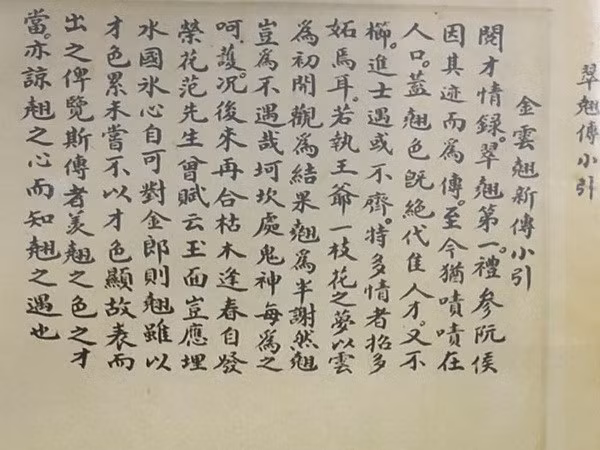 翠翹傳小引
金雲翹新傳小引
閱才情錄。翠翹第一。禮參阮侯
因其迹而爲傳。至今猶嘖嘖在
人口。蓋翹色旣絶代佳人才。又不
櫛。進士遇或不齊。特多情者招多
妬焉耳。若執王爺一枝花之夢以雲
爲初開觀爲結果翹爲半謝然翹
豈爲不遇哉坷坎處鬼神每爲之
呵護。况後來再合枯木逢春自發
榮花范先生曾賦云玉面豈應埋
水國氷心自可對金郎則翹雖以
才色累未嘗不以才色顯故表而
出之俾覽斯傳者羙翹之色之才
當。亦諒翹之心而知翹之遇也